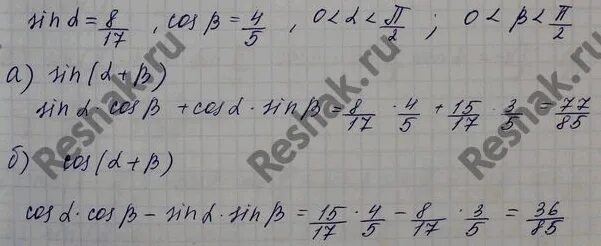 sin α = 8/17 , cos β = 4/5 , 0 < α < π/2 ; 0 < β < π/2
а) sin(α+β)
sin α · cos β + cos α · sin β = 8/17 · 4/5 + 15/17 · 3/5 = 77/85
б) cos(α+β)
cos α · cos β − sin α · sin β = 15/17 · 4/5 − 8/17 · 3/5 = 36/85
Reshak.ru
Reshak.ru
Reshak.ru